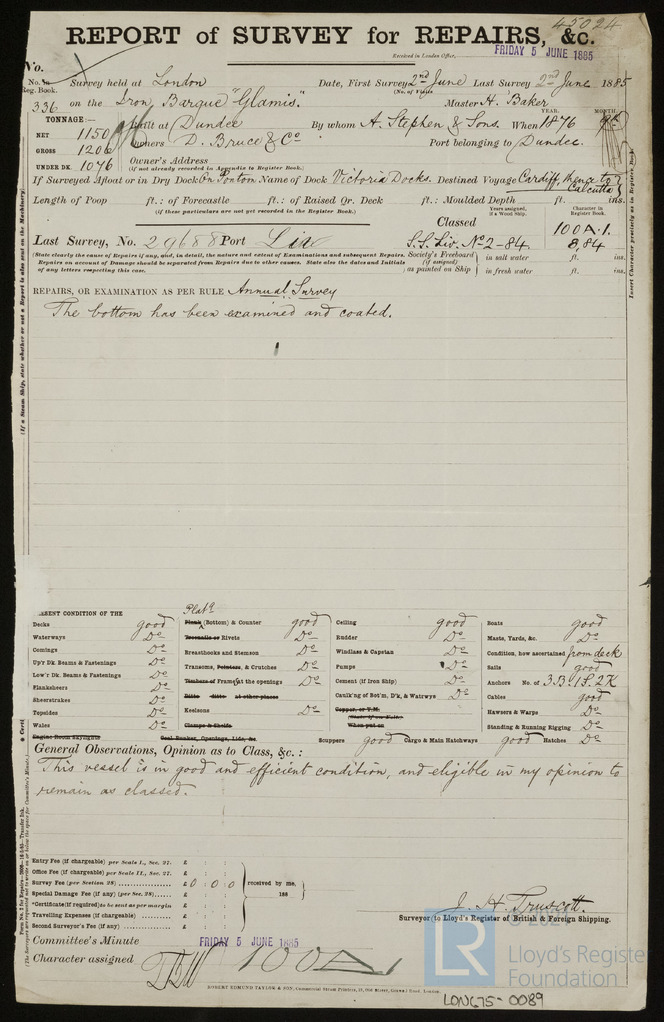 45024
REPORT of SURVEY for REPAIRS, &c.
Received in London Office, FRIDAY 5 JUNE 1885
No.
No. in Reg. Book. Survey held at London Date, First Survey 2nd June Last Survey 2nd June 1885
(No. of Visits
336 on the Iron Barque "Glamis". Master H. Baker
TONNAGE:— Built at Dundee By whom A. Stephen & Sons. When YEAR. 1876 MONTH.
NET 1150
GROSS 1206 Owners D. Bruce & Co Port belonging to Dundee.
UNDER DK. 1076 Owner's Address
(if not already recorded in Appendix to Register Book.)
If Surveyed Afloat or in Dry Dock On Ponton Name of Dock Victoria Docks. Destined Voyage Cardiff, thence to Calcutta
Length of Poop ft.: of Forecastle ft.: of Raised Qr. Deck ft.: Moulded Depth ft. ins.
(if these particulars are not yet recorded in the Register Book.)
Years assigned, if a Wood Ship. Character in Register Book.
Classed 100A.1.
Last Survey, No. 29688 Port Liv S.S. Liv. No 2-84. 8,84
(State clearly the cause of Repairs if any, and, in detail, the nature and extent of Examinations and subsequent Repairs. Repairs on account of Damage should be separated from Repairs due to other causes. State also the dates and Initials of any letters respecting this case.
Society's Freeboard (if assigned) as painted on Ship in salt water ft. ins.
in fresh water ft. ins.
REPAIRS, OR EXAMINATION AS PER RULE Annual Survey
The bottom has been examined and coated.
PRESENT CONDITION OF THE
Decks good
Waterways Do
Comings Do
Up'r Dk. Beams & Fastenings Do
Low'r Dk. Beams & Fastenings Do
Planksheers Do
Sheerstrakes Do
Topsides Do
Wales Do
Engine Room Skylights
Plate
Plank (Bottom) & Counter good
Treenails or Rivets Do
Breasthooks and Stemson Do
Transoms, Pointers, & Crutches Do
Timbers of Frame at the openings Do
Ditto ditto at other places
Keelsons Do
Clamps & Shelfs
Coal Bunker, Openings, Lids, &c.
Ceiling good
Rudder Do
Windlass & Capstan Do
Pumps Do
Cement (if Iron Ship) Do
Caulk'ng of Bot'm, D'k, & Watrwys Do
Copper, or Y.M.
When put on
Scuppers good Cargo & Main Hatchways good Hatches Do
Boats good
Masts, Yards, &c. Do
Condition, how ascertained from deck
Sails good
Anchors No. of 3B. 1S. 2K
Cables good
Hawsers & Warps Do
Standing & Running Rigging Do
General Observations, Opinion as to Class, &c.:
This vessel is in good and efficient condition, and eligible in my opinion to
remain as classed.
Entry Fee (if chargeable) per Scale I., Sec. 27. £ : :
Office Fee (if chargeable) per Scale II., Sec. 27. £ : :
Survey Fee (per Section 28) £ 0 : 0 : 0
Special Damage Fee (if any) (per Sec. 28) £ : :
*Certificate (if required) to be sent as per margin £ : :
Travelling Expenses (if chargeable) £ : :
Second Surveyor's Fee (if any) £ : :
received by me, 188
J. H. Truscott.
Surveyor to Lloyd's Register of British & Foreign Shipping.
Committee's Minute FRIDAY 5 JUNE 1885
Character assigned 100A1
ROBERT EDMUND TAYLOR & SON, Commercial Steam Printers, 19, Old Street, Goswell Road, London.
© 2021
LR
Lloyd's Register
Foundation
LON675-0089